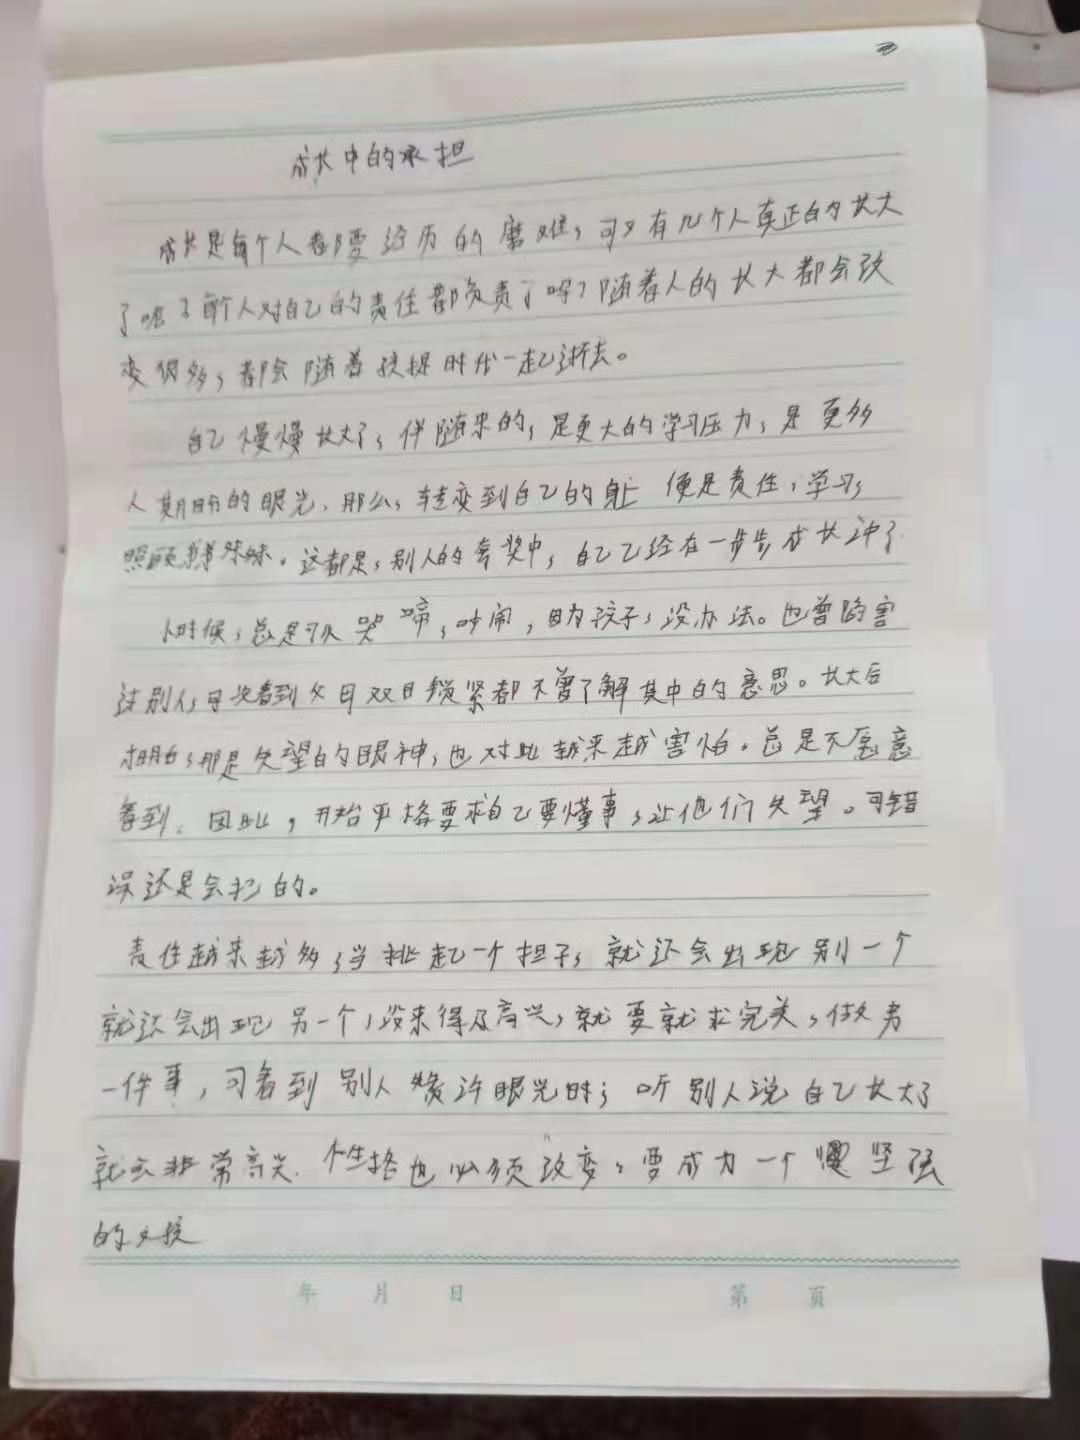 成长中的承担
成长是每个人都要经历的磨难，可又有几个人真正的长大
了呢？每个人对自己的责任都负责了吗？随着人的长大都会改
变很多，都会随着孩提时代一起逝去。
自己慢慢长大了，伴随来的，是更大的学习压力，是更多
人期盼的眼光。那么，转变到自己的身上便是责任，学习，
照顾弟弟妹妹。这都是，别人的夸奖中，自己已经在一步步成长
小时候，总是可以哭啼，吵闹，因为孩子，没办法。也曾陷害
过别人，每次看到父母双目锁紧都不曾了解其中的意思。长大后
明白，那是失望的眼神，也对此越来越害怕。总是不愿意
看到。因此，开始严格要求自己要懂事，让他们失望。可错
误还是会犯的。
责任越来越多，当挑起一个担子，就还会出现别一个
就还会出现另一个，没来得及高兴，就要就求完美，做另
一件事，可看到别人许眼光时，听别人说自己长大了
就会非常高兴。性格也必须改变，要成为一个坚强
的女孩
年 月 日 第 页